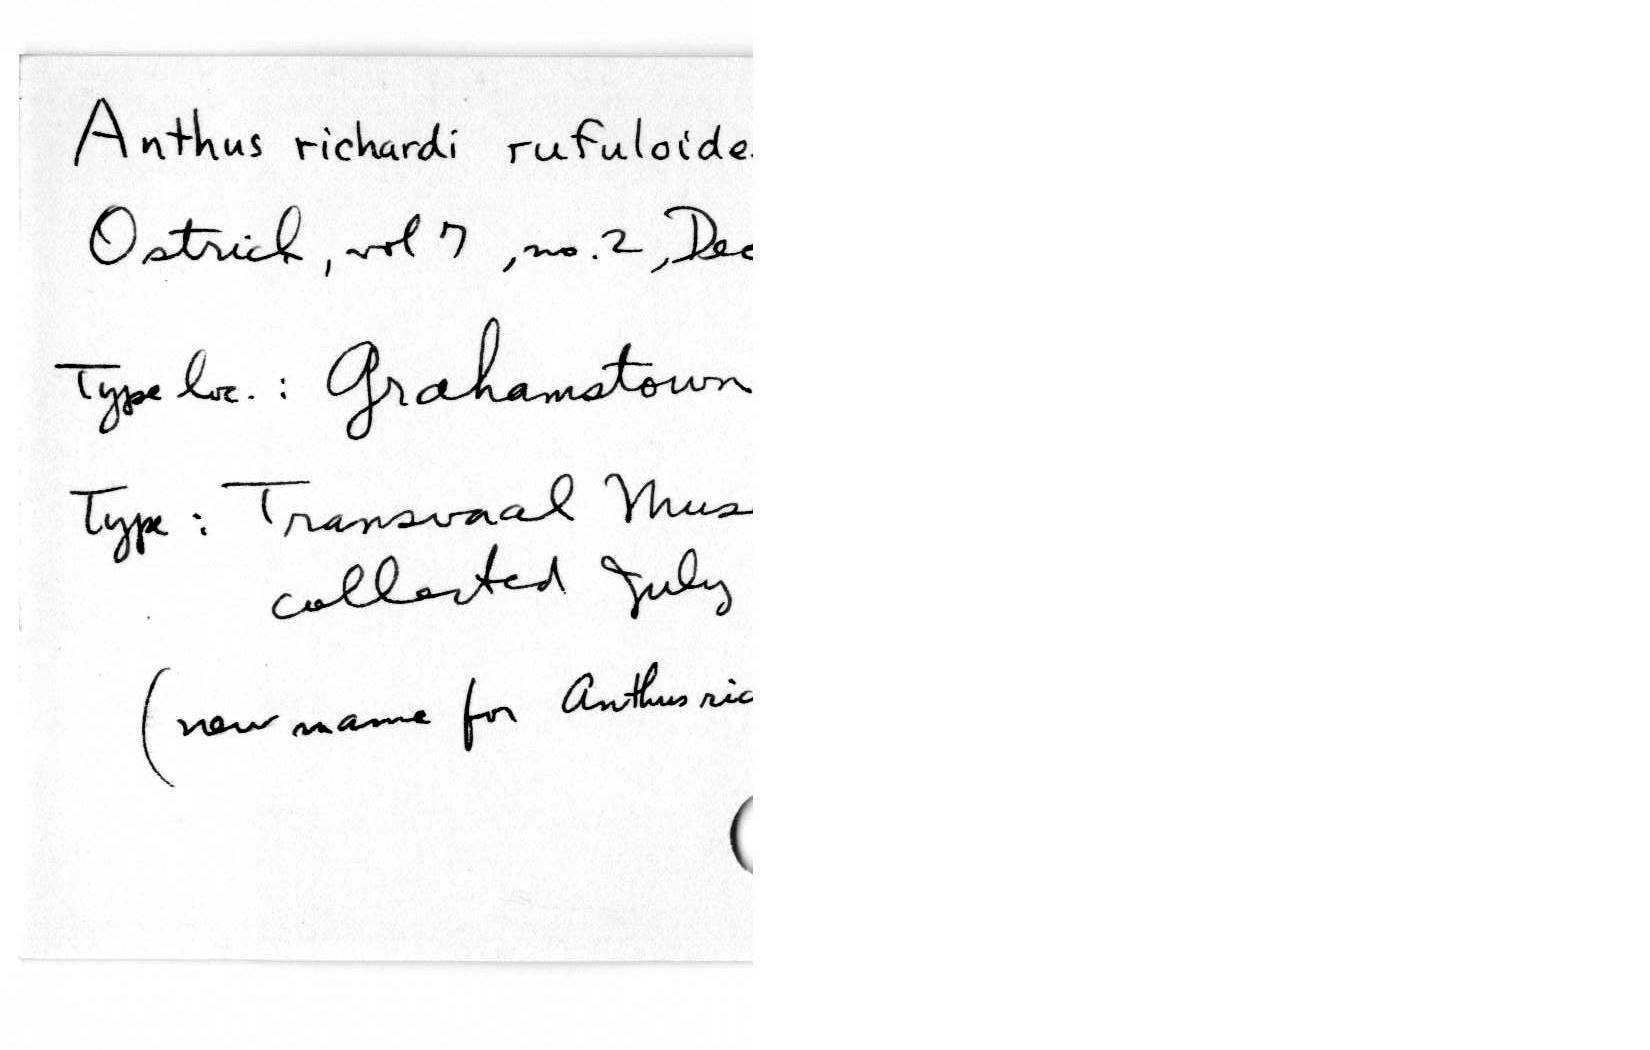 Anthus richardi rufuloide
Ostrich, vol 7, no. 2, Dec
Type loc. : Grahamstown
Type : Transvaal Mus
collected July
(new name for Anthus ric